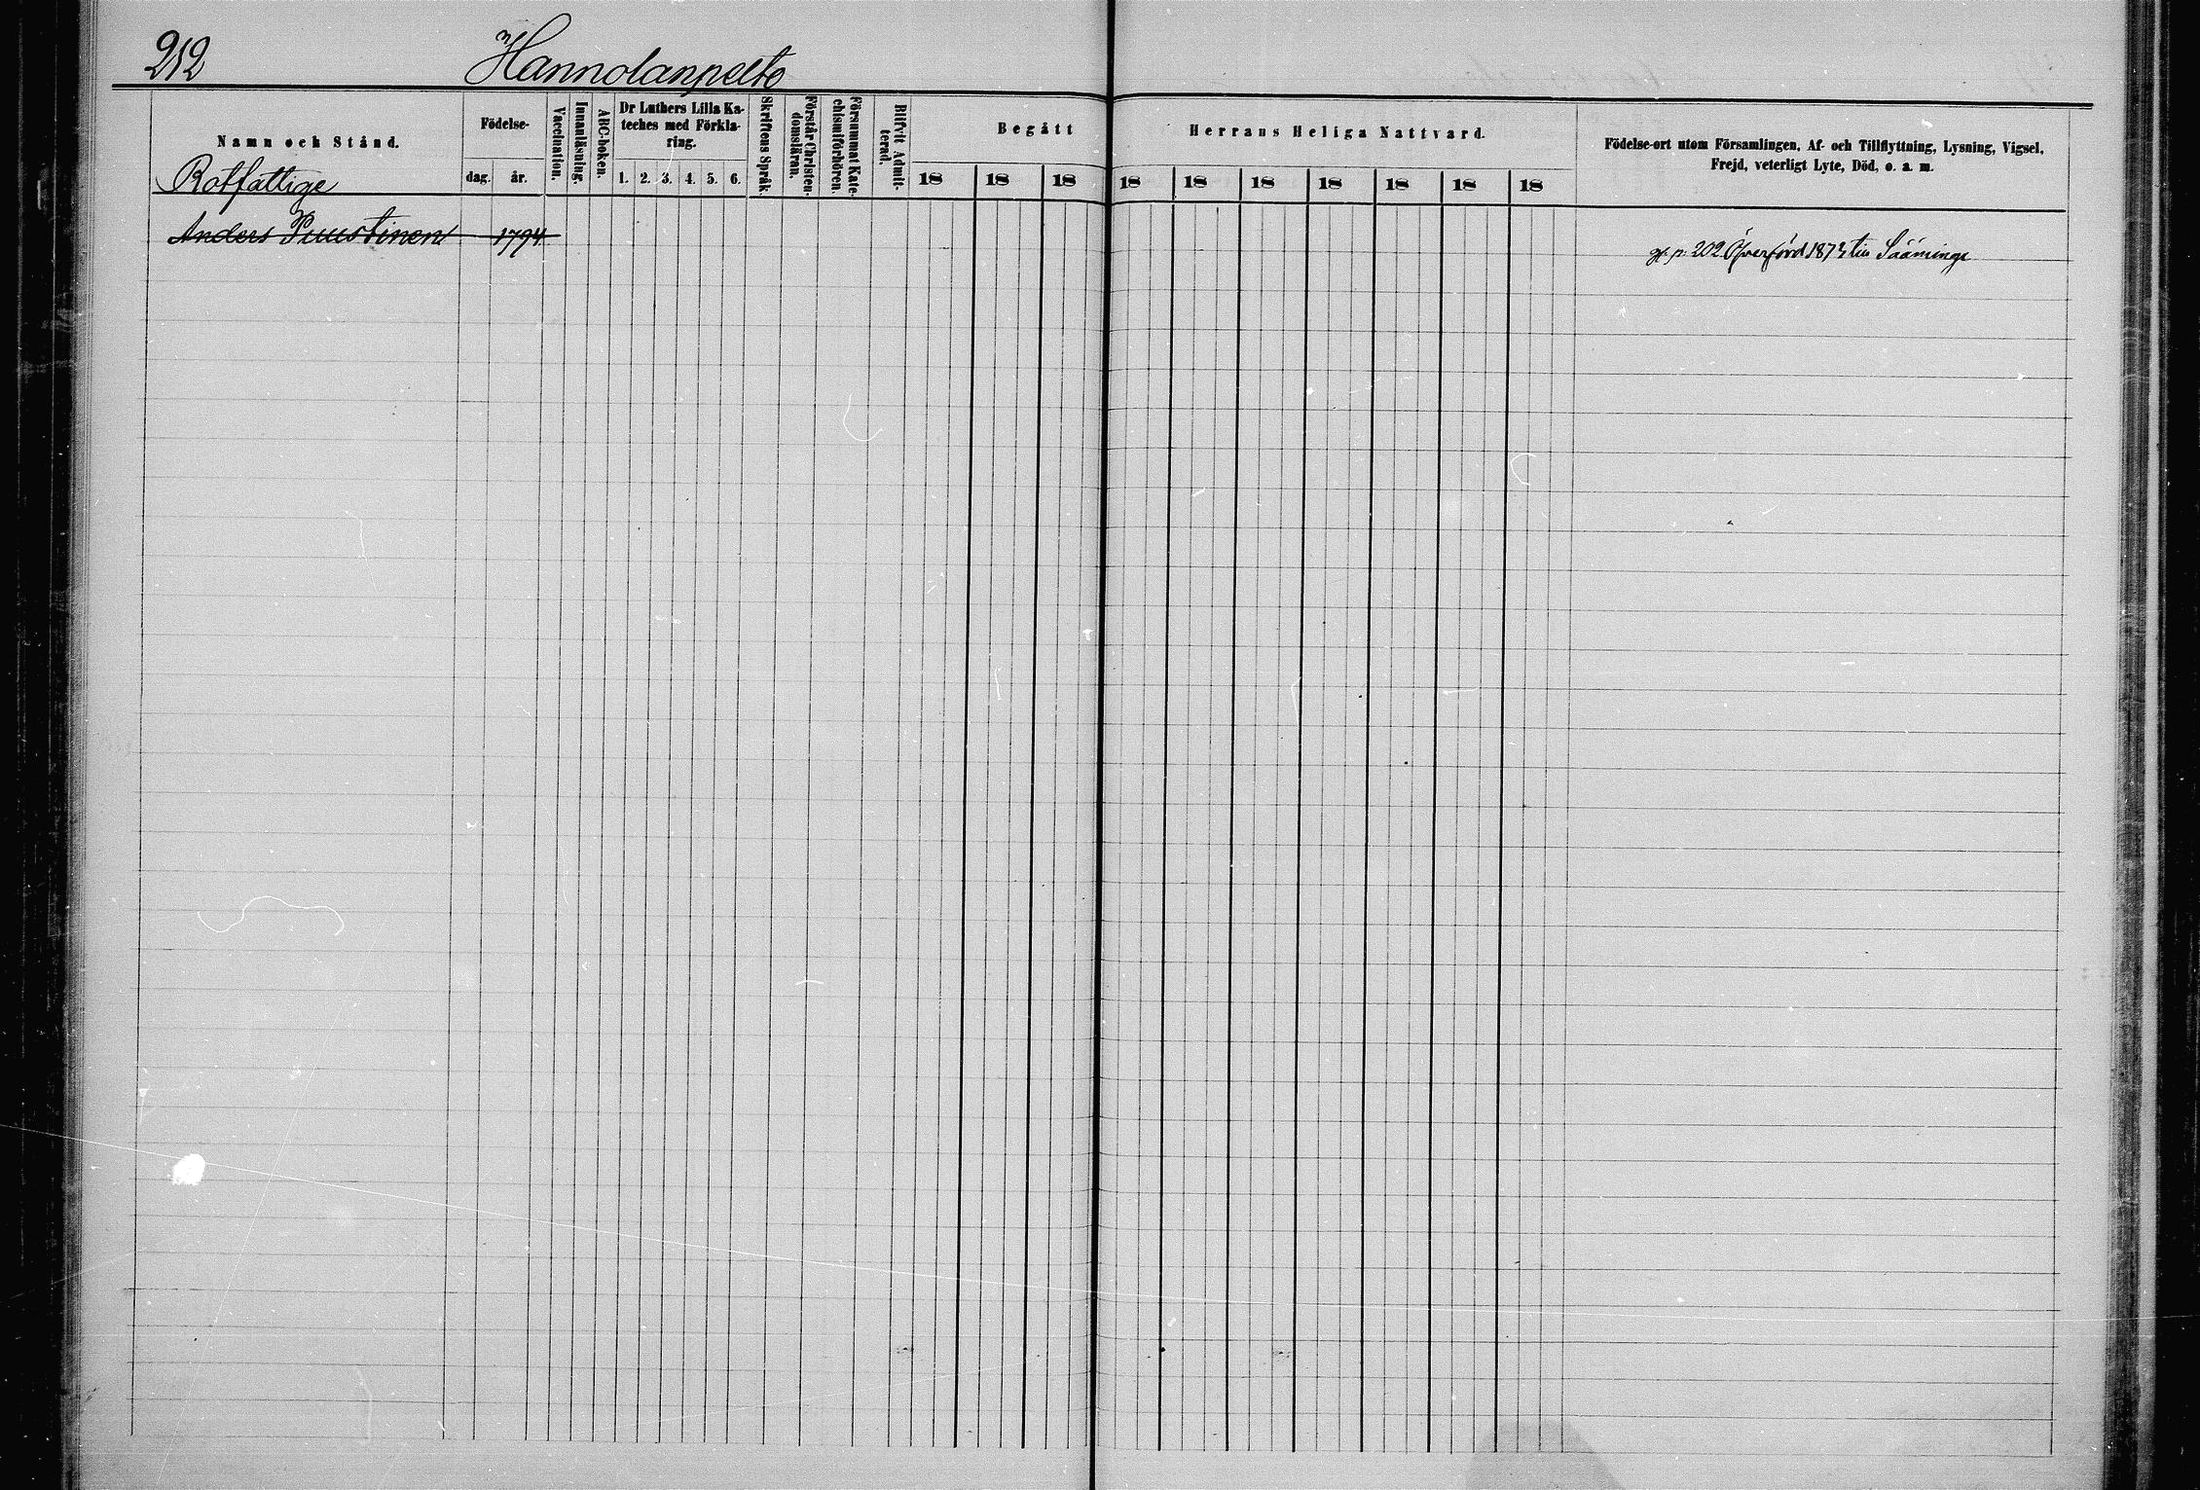 212 Hannolanpelto
Namn och Stånd.
Rotfattige
Födelse-
dag. år.
Vaccination.
Innanläsning.
ABC-boken.
Dr Luthers Lilla Ka-
teches med Förkla-
ring.
1. 2. 3. 4. 5. 6.
Skriftens Språk.
Förstår Christen-
domsläran.
Försummat Kate-
chismiförhören.
Blifvit Admit-
terad.
Begått Herrans Heliga Nattvard.
18 18 18 18 18 18 18 18 18 18
Födelse-ort utom Församlingen, Af- och Tillflyttning, Lysning, Vigsel,
Frejd, veterligt Lyte, Död, o. a. m.
Anders Puustinen 1794 p. 202. Öfverförd till Sääminge